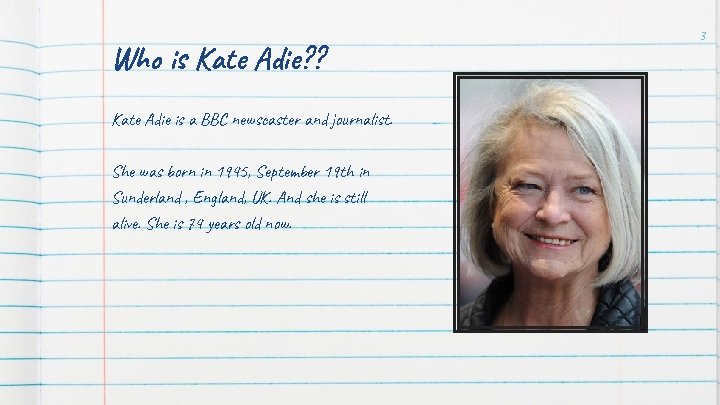 3
Who is Kate Adie??
Kate Adie is a BBC newscaster and journalist.
She was born in 1945, September 19th in
Sunderland , England, UK. And she is still
alive. She is 74 years old now.